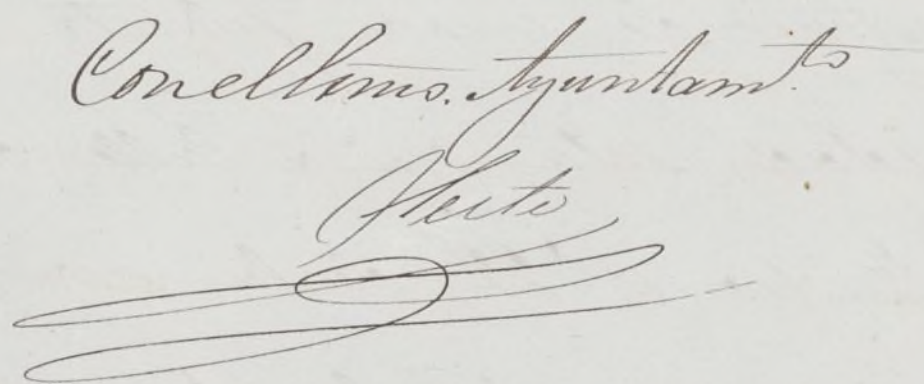 Con el Ilmo. Ayuntam.to
Pleito